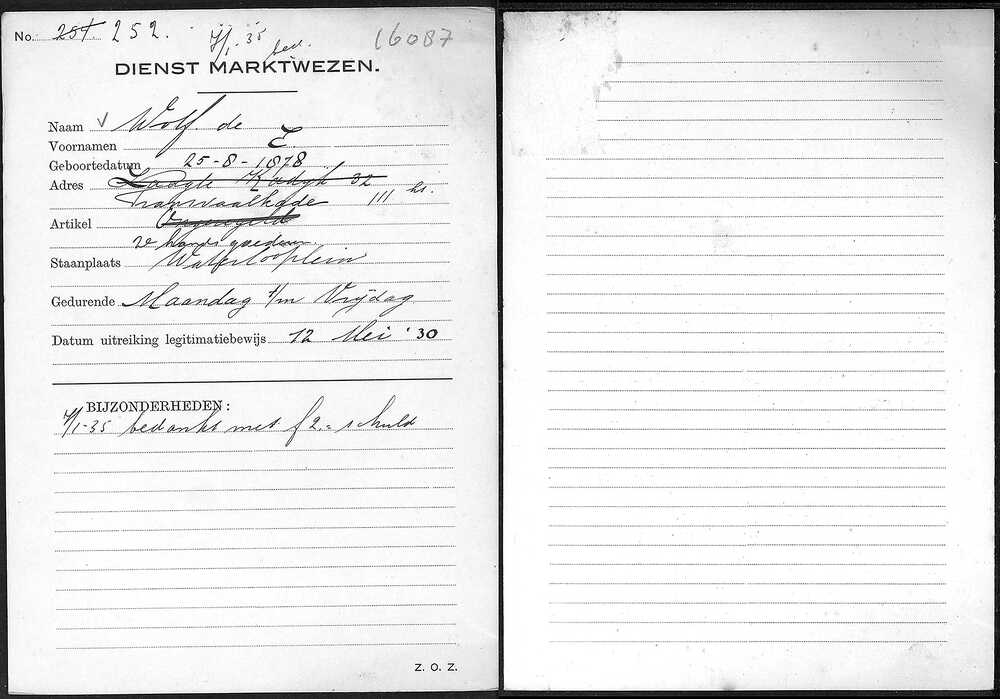 No. 251. 252. 7/1-35 bed. 16087
DIENST MARKTWEZEN.
Naam V Wolf. de
Voornamen E.
Geboortedatum 25-8-1878
Adres Laagte Kadijk 32
Transvaalkade 111 hs.
Artikel Ongeregeld
2e hands goederen.
Staanplaats Waterlooplein
Gedurende Maandag t/m Vrijdag
Datum uitreiking legitimatiebewijs 12 Mei '30
BIJZONDERHEDEN:
7/1-35 bedankt met f 2.= schuld
Z. O. Z.